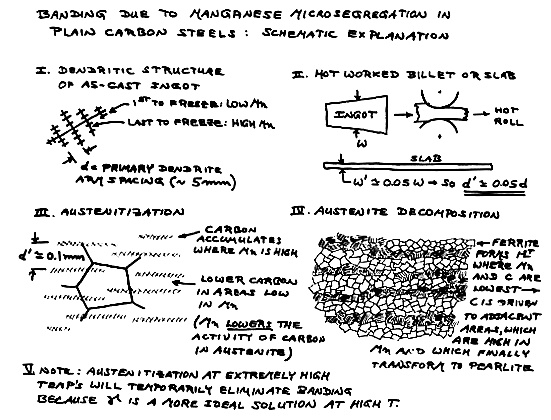 BANDING DUE TO MANGANESE MICROSEGREGATION IN
PLAIN CARBON STEELS : SCHEMATIC EXPLANATION
I. DENDRITIC STRUCTURE
OF AS-CAST INGOT
1ST TO FREEZE: LOW Mn
LAST TO FREEZE: HIGH Mn
d = PRIMARY DENDRITE
ARM SPACING (~ 5mm)
II. HOT WORKED BILLET OR SLAB
INGOT
W
HOT
ROLL
SLAB
W' ≅ 0.05 W → SO d' ≅ 0.05d
III. AUSTENITIZATION
d' ≅ 0.1mm
CARBON
ACCUMULATES
WHERE Mn IS HIGH
LOWER CARBON
IN AREAS LOW
IN Mn
(Mn LOWERS THE
ACTIVITY OF CARBON
IN AUSTENITE)
IV. AUSTENITE DECOMPOSITION
FERRITE
FORMS 1ST
WHERE Mn
AND C ARE
LOWEST
C IS DRIVEN
TO ADJACENT
AREAS, WHICH
ARE HIGH IN
Mn AND WHICH FINALLY
TRANSFORM TO PEARLITE
V NOTE: AUSTENITIZATION AT EXTREMELY HIGH
TEMP'S WILL TEMPORARILY ELIMINATE BANDING
BECAUSE γ IS A MORE IDEAL SOLUTION AT HIGH T.